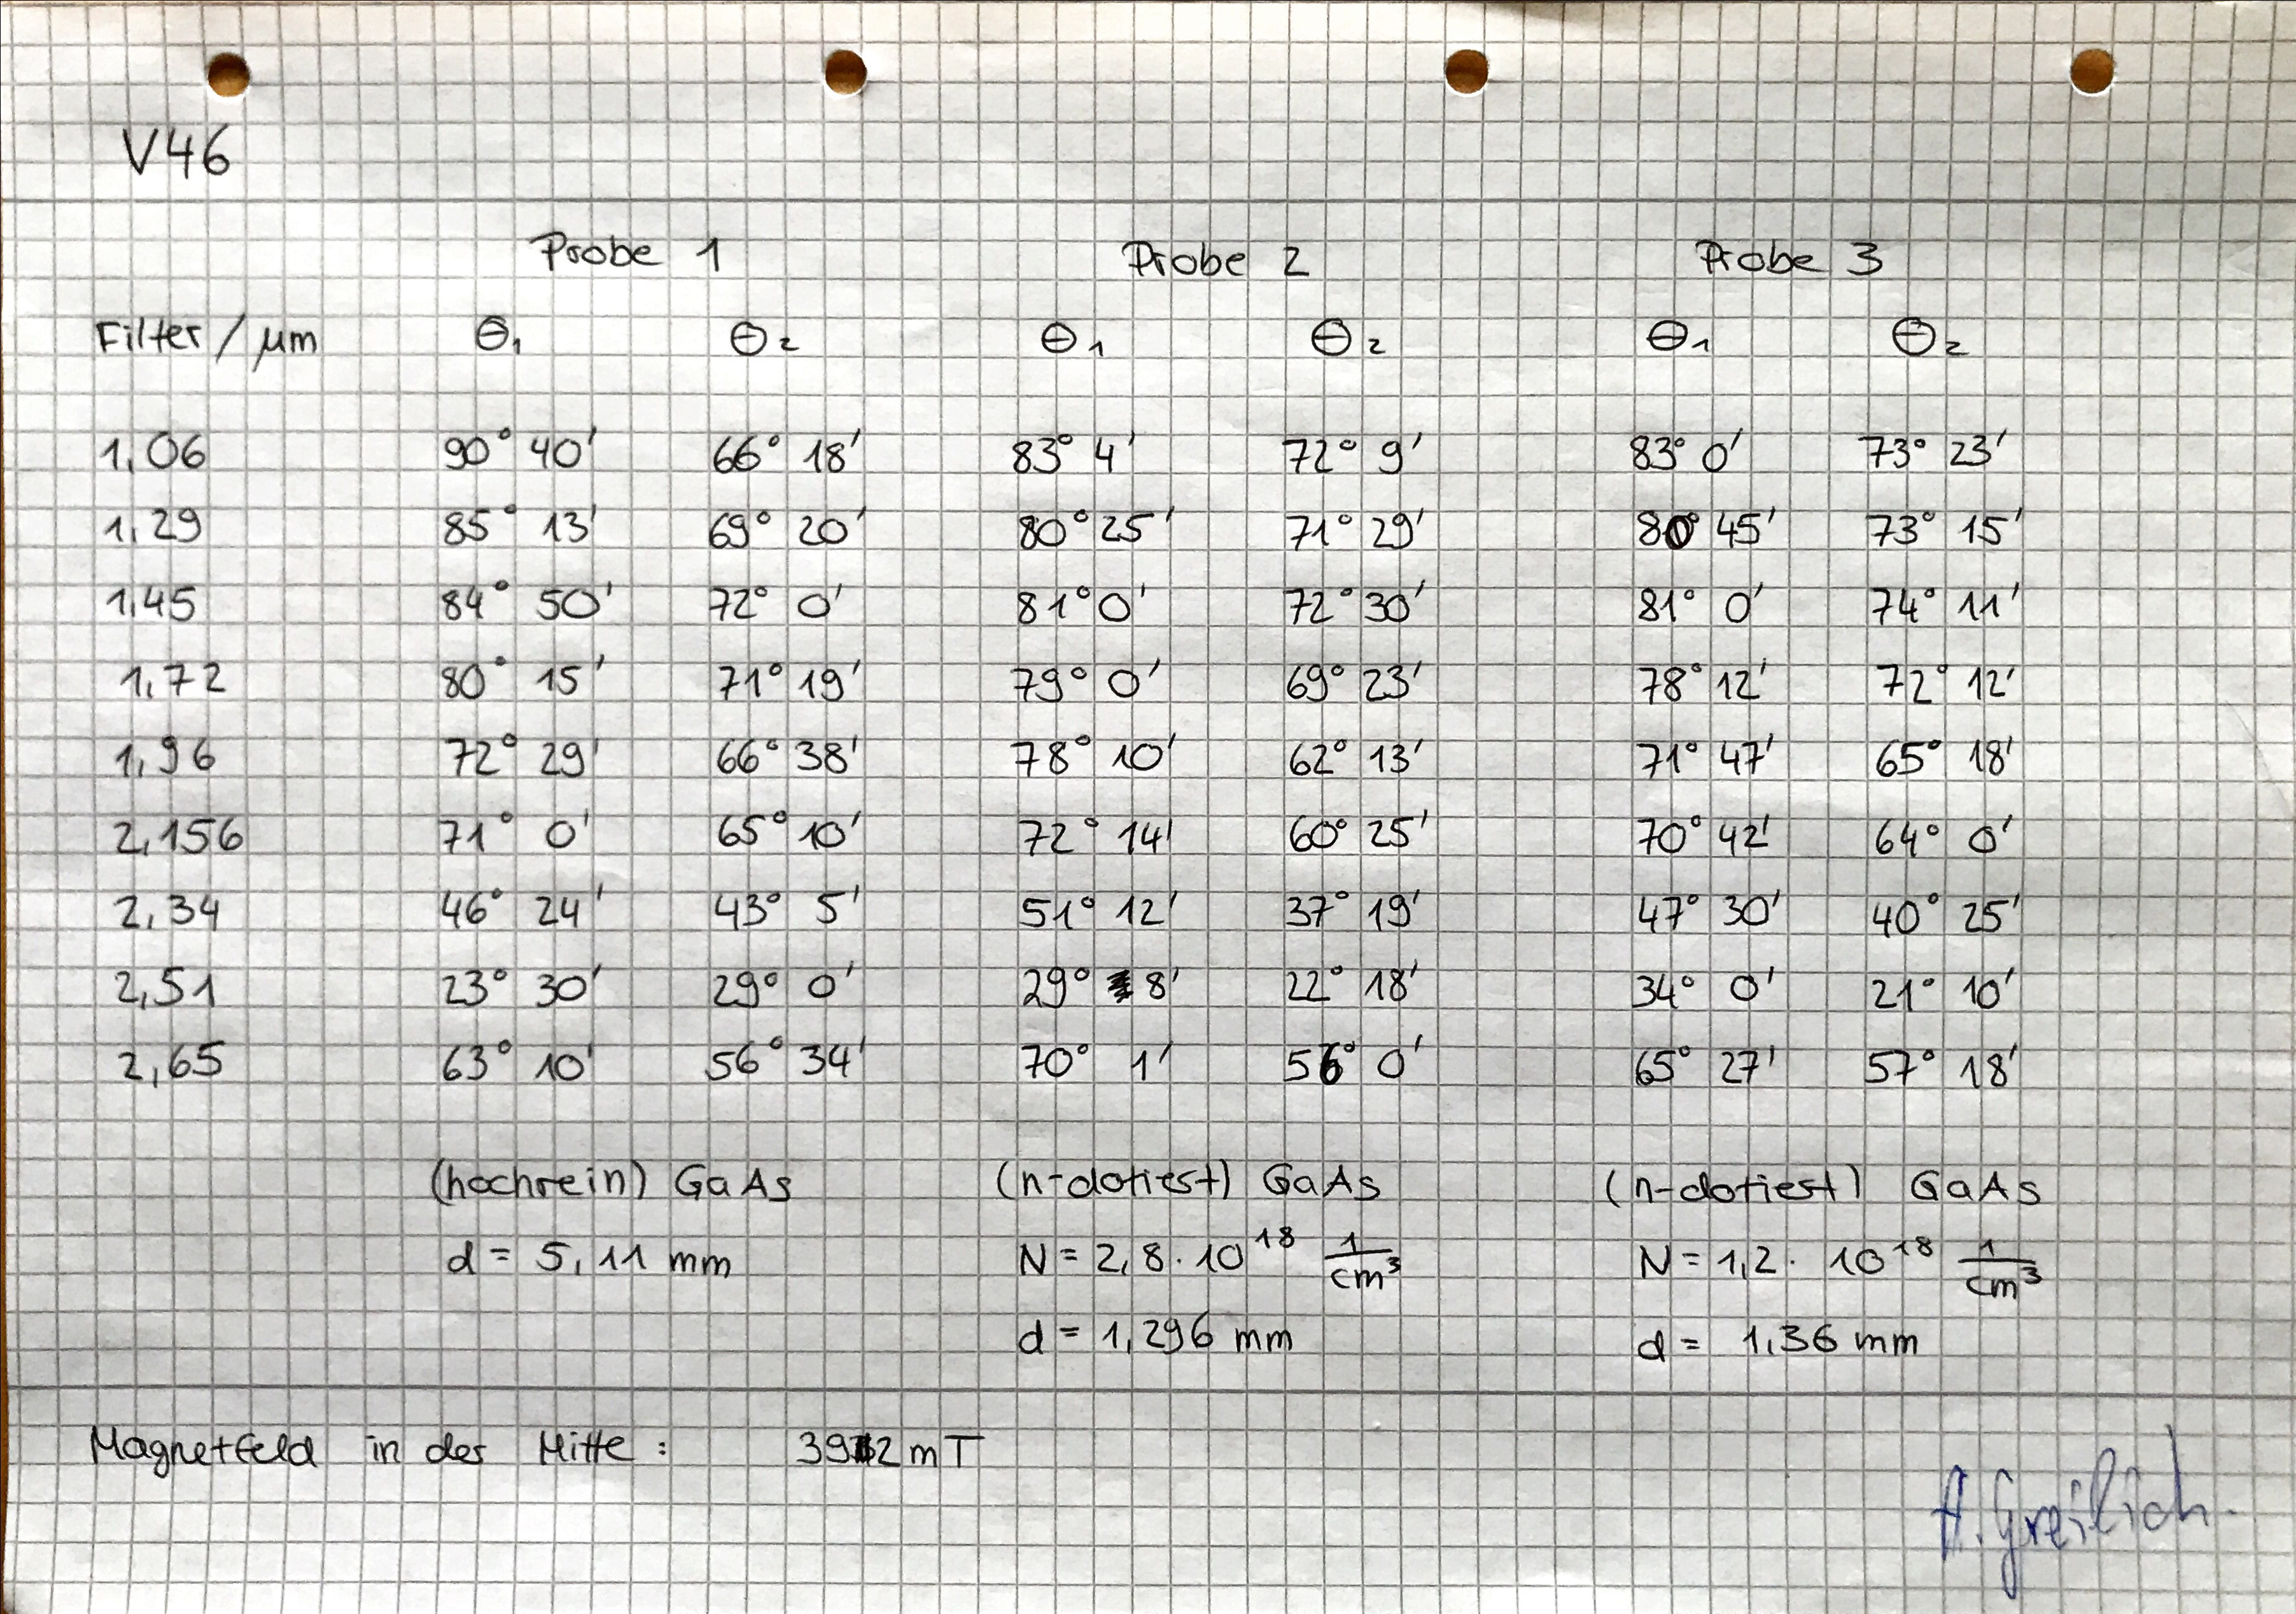 V46
Probe 1 Probe 2 Probe 3
Filter / µm Θ₁ Θ₂ Θ₁ Θ₂ Θ₁ Θ₂
1,06 90° 40' 66° 18' 83° 4' 72° 9' 83° 0' 73° 23'
1,29 85° 13' 69° 20' 80° 25' 71° 29' 80° 45' 73° 15'
1,45 84° 50' 72° 0' 81° 0' 72° 30' 81° 0' 74° 11'
1,72 80° 15' 71° 19' 79° 0' 69° 23' 78° 12' 72° 12'
1,96 72° 29' 66° 38' 78° 10' 62° 13' 71° 47' 65° 18'
2,156 71° 0' 65° 10' 72° 14' 60° 25' 70° 42' 64° 0'
2,34 46° 24' 43° 5' 51° 12' 37° 19' 47° 30' 40° 25'
2,51 23° 30' 29° 0' 29° 8' 22° 18' 34° 0' 21° 10'
2,65 63° 10' 56° 34' 70° 1' 56° 0' 65° 27' 57° 18'
(hochrein) GaAs (n-dotiert) GaAs (n-dotiert) GaAs
d = 5,11 mm N = 2,8 · 10¹⁸ 1/cm³ N = 1,2 · 10¹⁸ 1/cm³
d = 1,296 mm d = 1,36 mm
Magnetfeld in der Mitte : mT
A. Greilich.